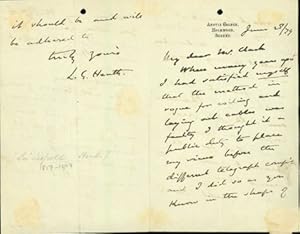 it should be and will
be adhered to
truly yours
L. G. Heath
1817-1907
Holmwood,
Surrey.
June 3/79
My dear Mr. Clark
Where many years ago
I had satisfied myself
that the method in
vogue for coiling and
laying out cables was
faulty I thought it a
public duty to place
my views before the
different telegraph comp
and I did so as you
know in the shape of